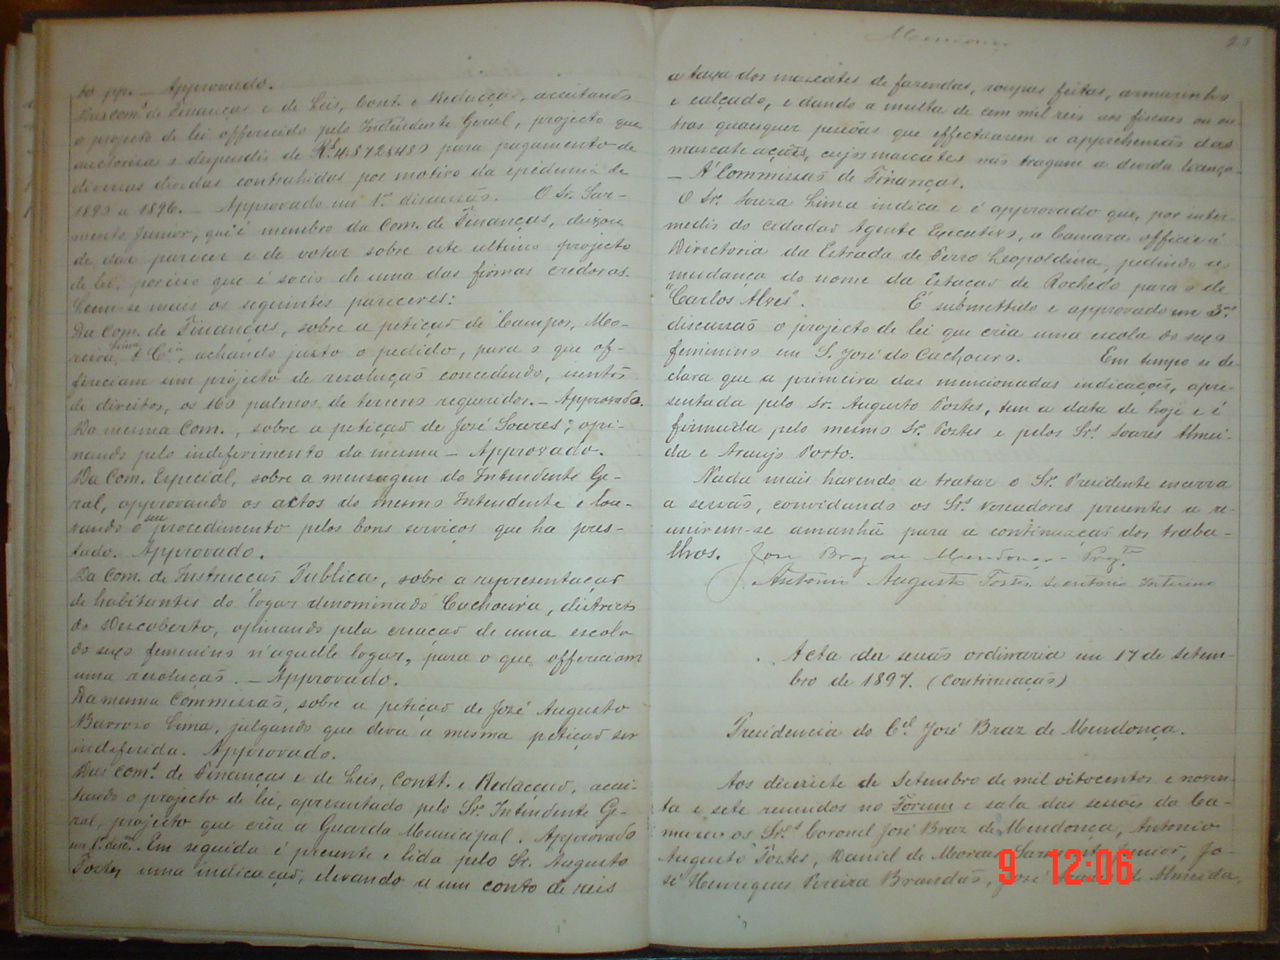 to pp. — Approvado.
Das Com.s de Finanças e de Leis, Cont. e Redacção, acceitando
o projecto de lei offerecido pelo Intendente Geral, projecto que
autorisa o dispendio de para pagamento de
diversas dividas contrahidas por motivo da epidemia de
1895 a 1896. — Approvado em 1.a discussão. O Sr. Sar-
mento Junior, que é membro da Com. de Finanças, deixou
de dar parecer e de votar sobre este ultimo projecto
de lei, porisso que é socio de uma das firmas credoras.
Leem-se mais os seguintes pareceres:
Da Com. de Finanças, sobre a petição de Campos, Mo-
reira & C.ia, achando justo o pedido, para o que of-
fereciam um projecto de resolução concedendo, isentos
de direitos, os 160 palmos de terreno requeridos. — Approvado.
Da mesma Com., sobre a petição de José Soares, opi-
nando pelo indeferimento da mesma — Approvado.
Da Com. Especial, sobre a mensagem do Intendente Ge-
ral, approvando os actos do mesmo Intendente e lou-
vando o seu procedimento pelos bons serviços que ha pres-
tado. Approvado.
Da Com. de Instrucção Publica, sobre a representação
de habitantes do logar denominado Cachoeira, districto
do Descoberto, opinando pela creação de uma escola
do sexo feminino n'aquelle logar, para o que offereciam
uma resolução. — Approvado.
Da mesma Commissão, sobre a petição de José Augusto
Barroso Lima, julgando que deva a mesma petição ser
indeferida. Approvado.
Das Com.s de Finanças e de Leis, Contt. e Redacção, accei-
tando o projecto de lei, apresentado pelo Sr. Intendente Ge-
ral, projecto que cria a Guarda Municipal. Approvado
em 1.a disc. Em seguida é presente e lida pelo Sr. Augusto
Fortes uma indicação, elevando a um conto de reis
Mendonça
a taxa dos mascates de fazendas, roupas feitas, armarinhos
e calçado, e dando a multa de cem mil reis aos fiscaes ou ou-
tras quaesquer pessoas que effectuarem a apprehensão das
mascateações, cujos mascates não tragam a devida licença.
— Á Commissão de Finanças.
O Sr. Souza Lima indica e é approvado que, por inter-
medio do cidadão Agente Executivo, a Camara officie á
Directoria da Estrada de Ferro Leopoldina, pedindo a
mudança do nome da Estação de Rochedo para o de
"Carlos Alves". É submettido e approvado em 3.a
discussão o projecto de lei que cria uma escola do sexo
feminino em S. José do Cachoeiro. Em tempo se de-
clara que a primeira das mencionadas indicações, apre-
sentada pelo Sr. Augusto Fortes, tem a data de hoje e é
firmada pelo mesmo Sr. Fortes e pelos Srs. Soares Almei-
da e Araujo Porto.
Nada mais havendo a tratar o Sr. Presidente encerra
a sessão, convidando os Srs. vereadores presentes a re-
unirem-se amanhã para a continuação dos traba-
lhos. José Braz de Mendonça
Antonio Augusto Fortes Secretario Interino
Acta da sessão ordinaria em 17 de Setem-
bro de 1897. (Continuação)
Presidencia do C.el José Braz de Mendonça.
Aos dizesete de Setembro de mil oitocentos e noven-
ta e sete reunidos no Forum e sala das sessões da Ca-
mara os Srs. Coronel José Braz de Mendonça, Antonio
Augusto Fortes, Daniel de Moraes Sarmento Junior, Jo-
sé Henriques Pereira Brandão, José de Almeida,
9 12:06